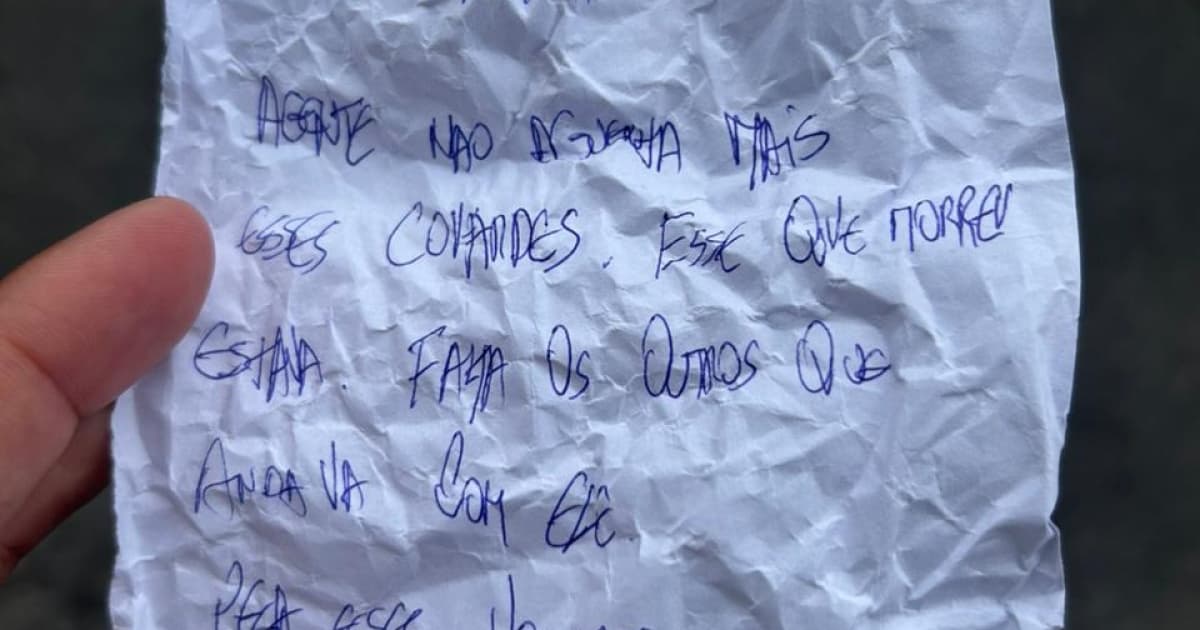 AGENTE NAO AGUENTA MAIS
ESSES COVARDES. ESSE QUE MORREU
ESTAVA. FALTA OS OUTROS QUE
ANDAVA COM ELE.
PEGA ESSE